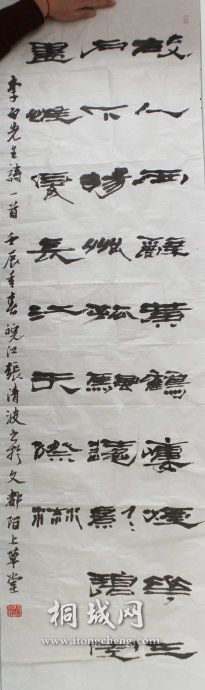 故人西辭黃鶴樓煙華三
月下揚州孤帆遠影碧空
盡唯見長江天際流
李白先生詩一首 壬辰年春皖江張清波书於文都陌上草堂
桐城网
www.itongcheng.com